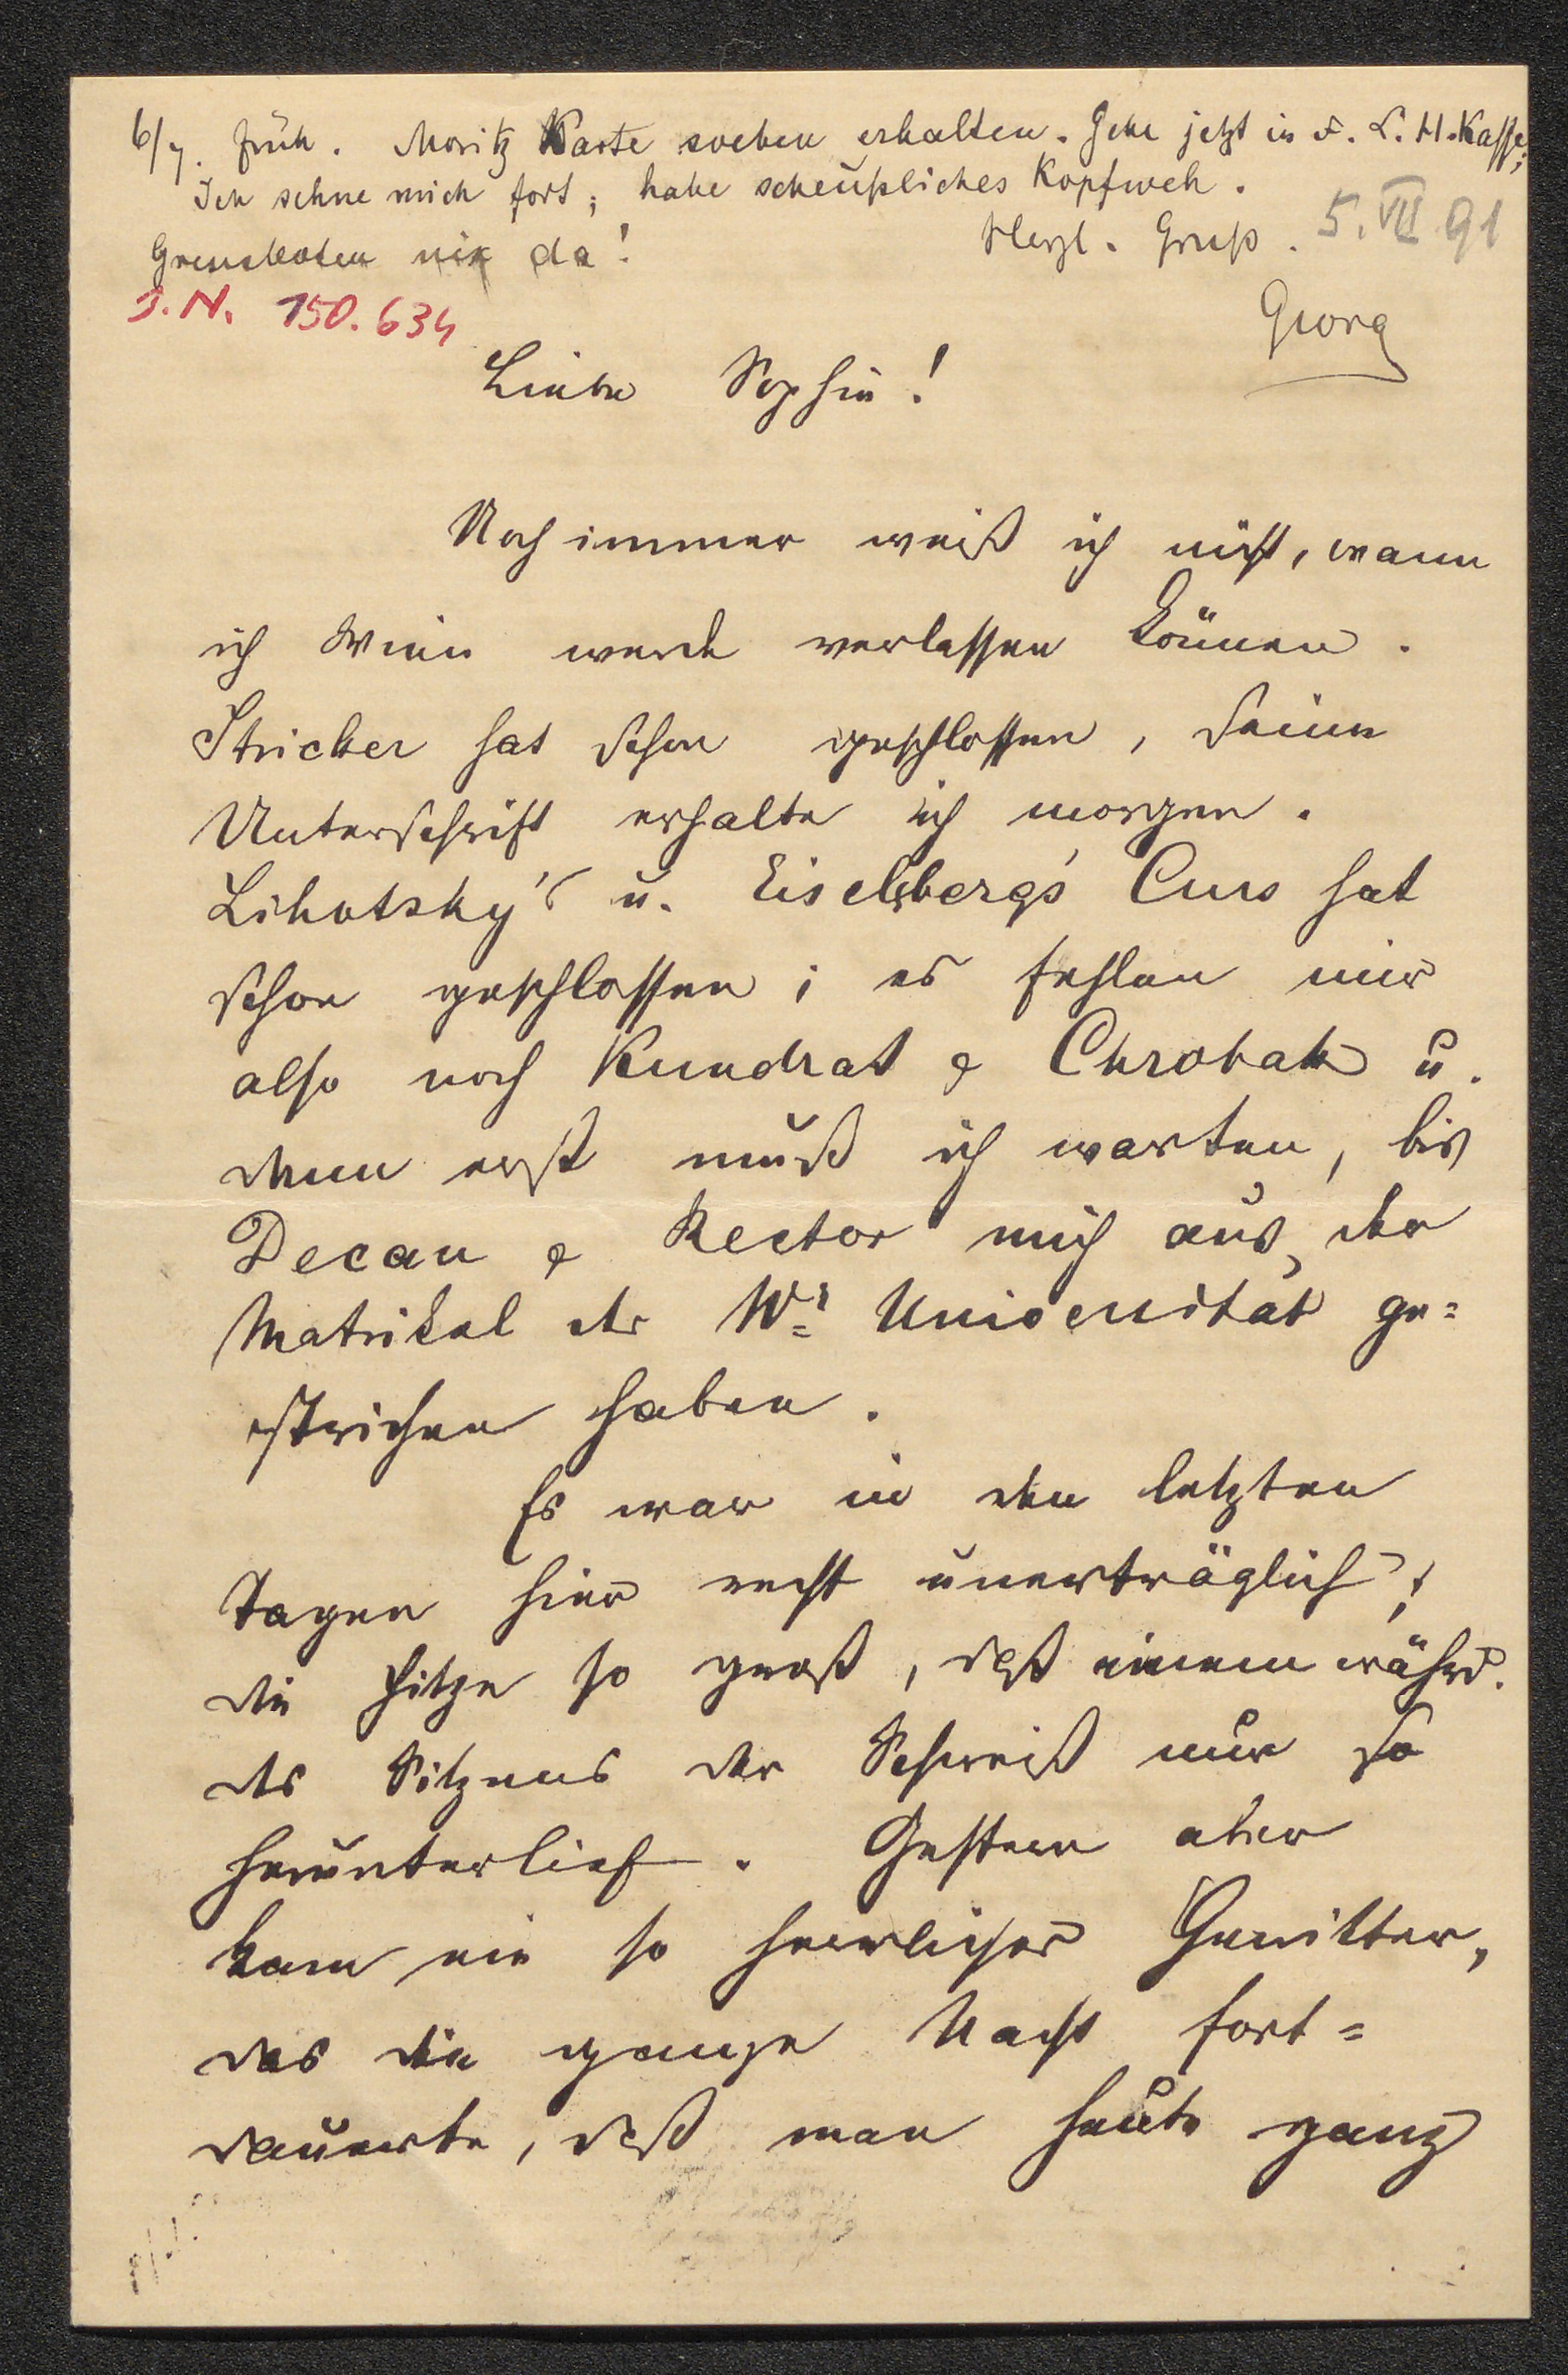 6/7. früh. Moritz Karte soeben erhalten. Gehe jetzt in F. L. H. Kasse;
Ich sehne mich fort; habe scheußliches Kopfweh.
Grenzboten nix da! Herzl. Gruß. 5. VII 91
J. N. 150.634
Georg
Liebe Sophie!
Noch immer weiß ich nicht, wann
ich Wien werde verlassen können.
Stricker hat schon geschlossen, seine
Unterschrift erhalte ich morgen.
Lihotzky's u. Eiselsberg's Curs hat
schon geschlossen; es fehlen mir
also noch Kundrat & Chrobak u.
dann erst muß ich warten, bis
Decan & Rector mich aus der
Matrikel der Wr Universität ge=
strichen haben.
Es war in den letzten
Tagen hier recht unerträglich;
die Hitze so groß, daß einem währd.
des Sitzens der Schweiß nur so
herunterlief. Gestern aber
kam ein so herrliches Gewitter,
das die ganze Nacht fort=
dauerte, daß man heute ganz